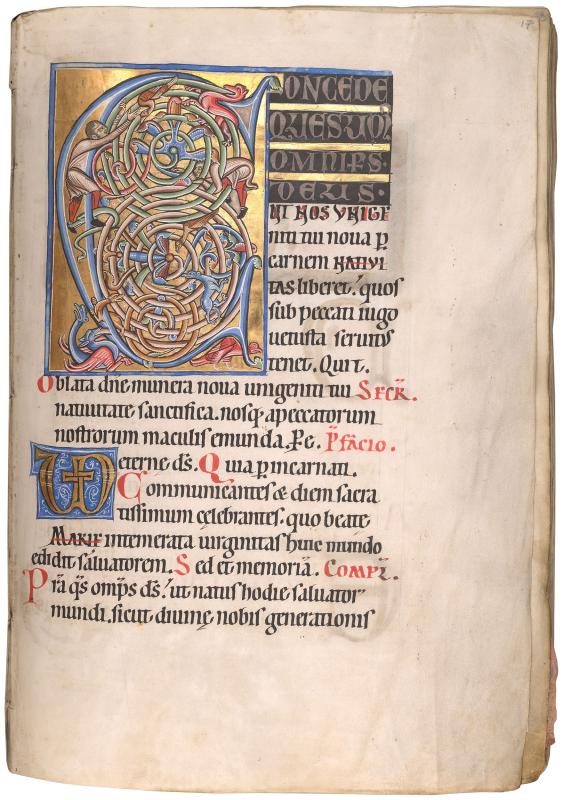 17
CONCEDE
QUESUM
OMNIPS·
DEUS·
UT NOS UNIGE
niti tui noua p̲
carnem NATIVI
TAS liberet. quos
sub peccati iugo
uetusta seruit᷑
tenet. Qui t.
Oblata dn̄e munera noua unigeniti tui SECR̄.
natiuitate sanctifica. nosq; apeccatorum
nostrorum maculis emunda. P̲ e. P̄facio.
eterne ds̄. Quia p̲ incarnati.
Communicantes & diem sacra
tissimum cęlebrantes. quo beate
MARIE intemerata uirginitas huic mundo
edidit saluatorem. Sed et memoriā. COMPL̄.
Prā qs̄ omp̄s ds̄. ut natus hodie saluator
mundi. sicut diuinę nobis generationis